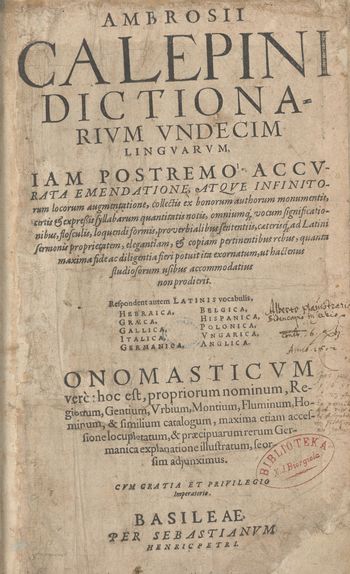 AMBROSII
CALEPINI
DICTIONA-
RIVM VNDECIM
LINGVARVM,
IAM POSTREMO ACCV-
RATA EMENDATIONE, ATQVE INFINITO-
rum locorum augmentatione, collectis ex bonorum authorum monumentis,
certis & expressis syllabarum quantitatis notis, omniumq; vocum significatio-
nibus, flosculis, loquendi formis, proverbialibus sententiis, caterisq; ad Latini
sermonis proprietatem, elegantiam, & copiam pertinentibus rebus, quanta
maxima fide ac diligentia fieri potuit ita exornatum, ut hactenus
studiosorum usibus accommodatius
non prodierit.
Respondent autem LATINIS vocabulis,
HEBRAICA, BELGICA,
GRÆCA, HISPANICA,
GALLICA, POLONICA,
ITALICA, VNGARICA,
GERMANICA, ANGLICA.
Alberto
ONOMASTICVM
verò: hoc est, propriorum nominum, Re-
gionum, Gentium, Vrbium, Montium, Fluminum, Ho-
minum, & similium catalogum, maxima etiam acces-
sione locupletatum, & præcipuarum rerum Ger-
manica explanatione illustratum, seor-
sim adjunximus.
BIBLIOTEKA
CVM GRATIA ET PRIVILEGIO
Imperatorio.
BASILEAE,
PER SEBASTIANVM
HENRICPETRI.